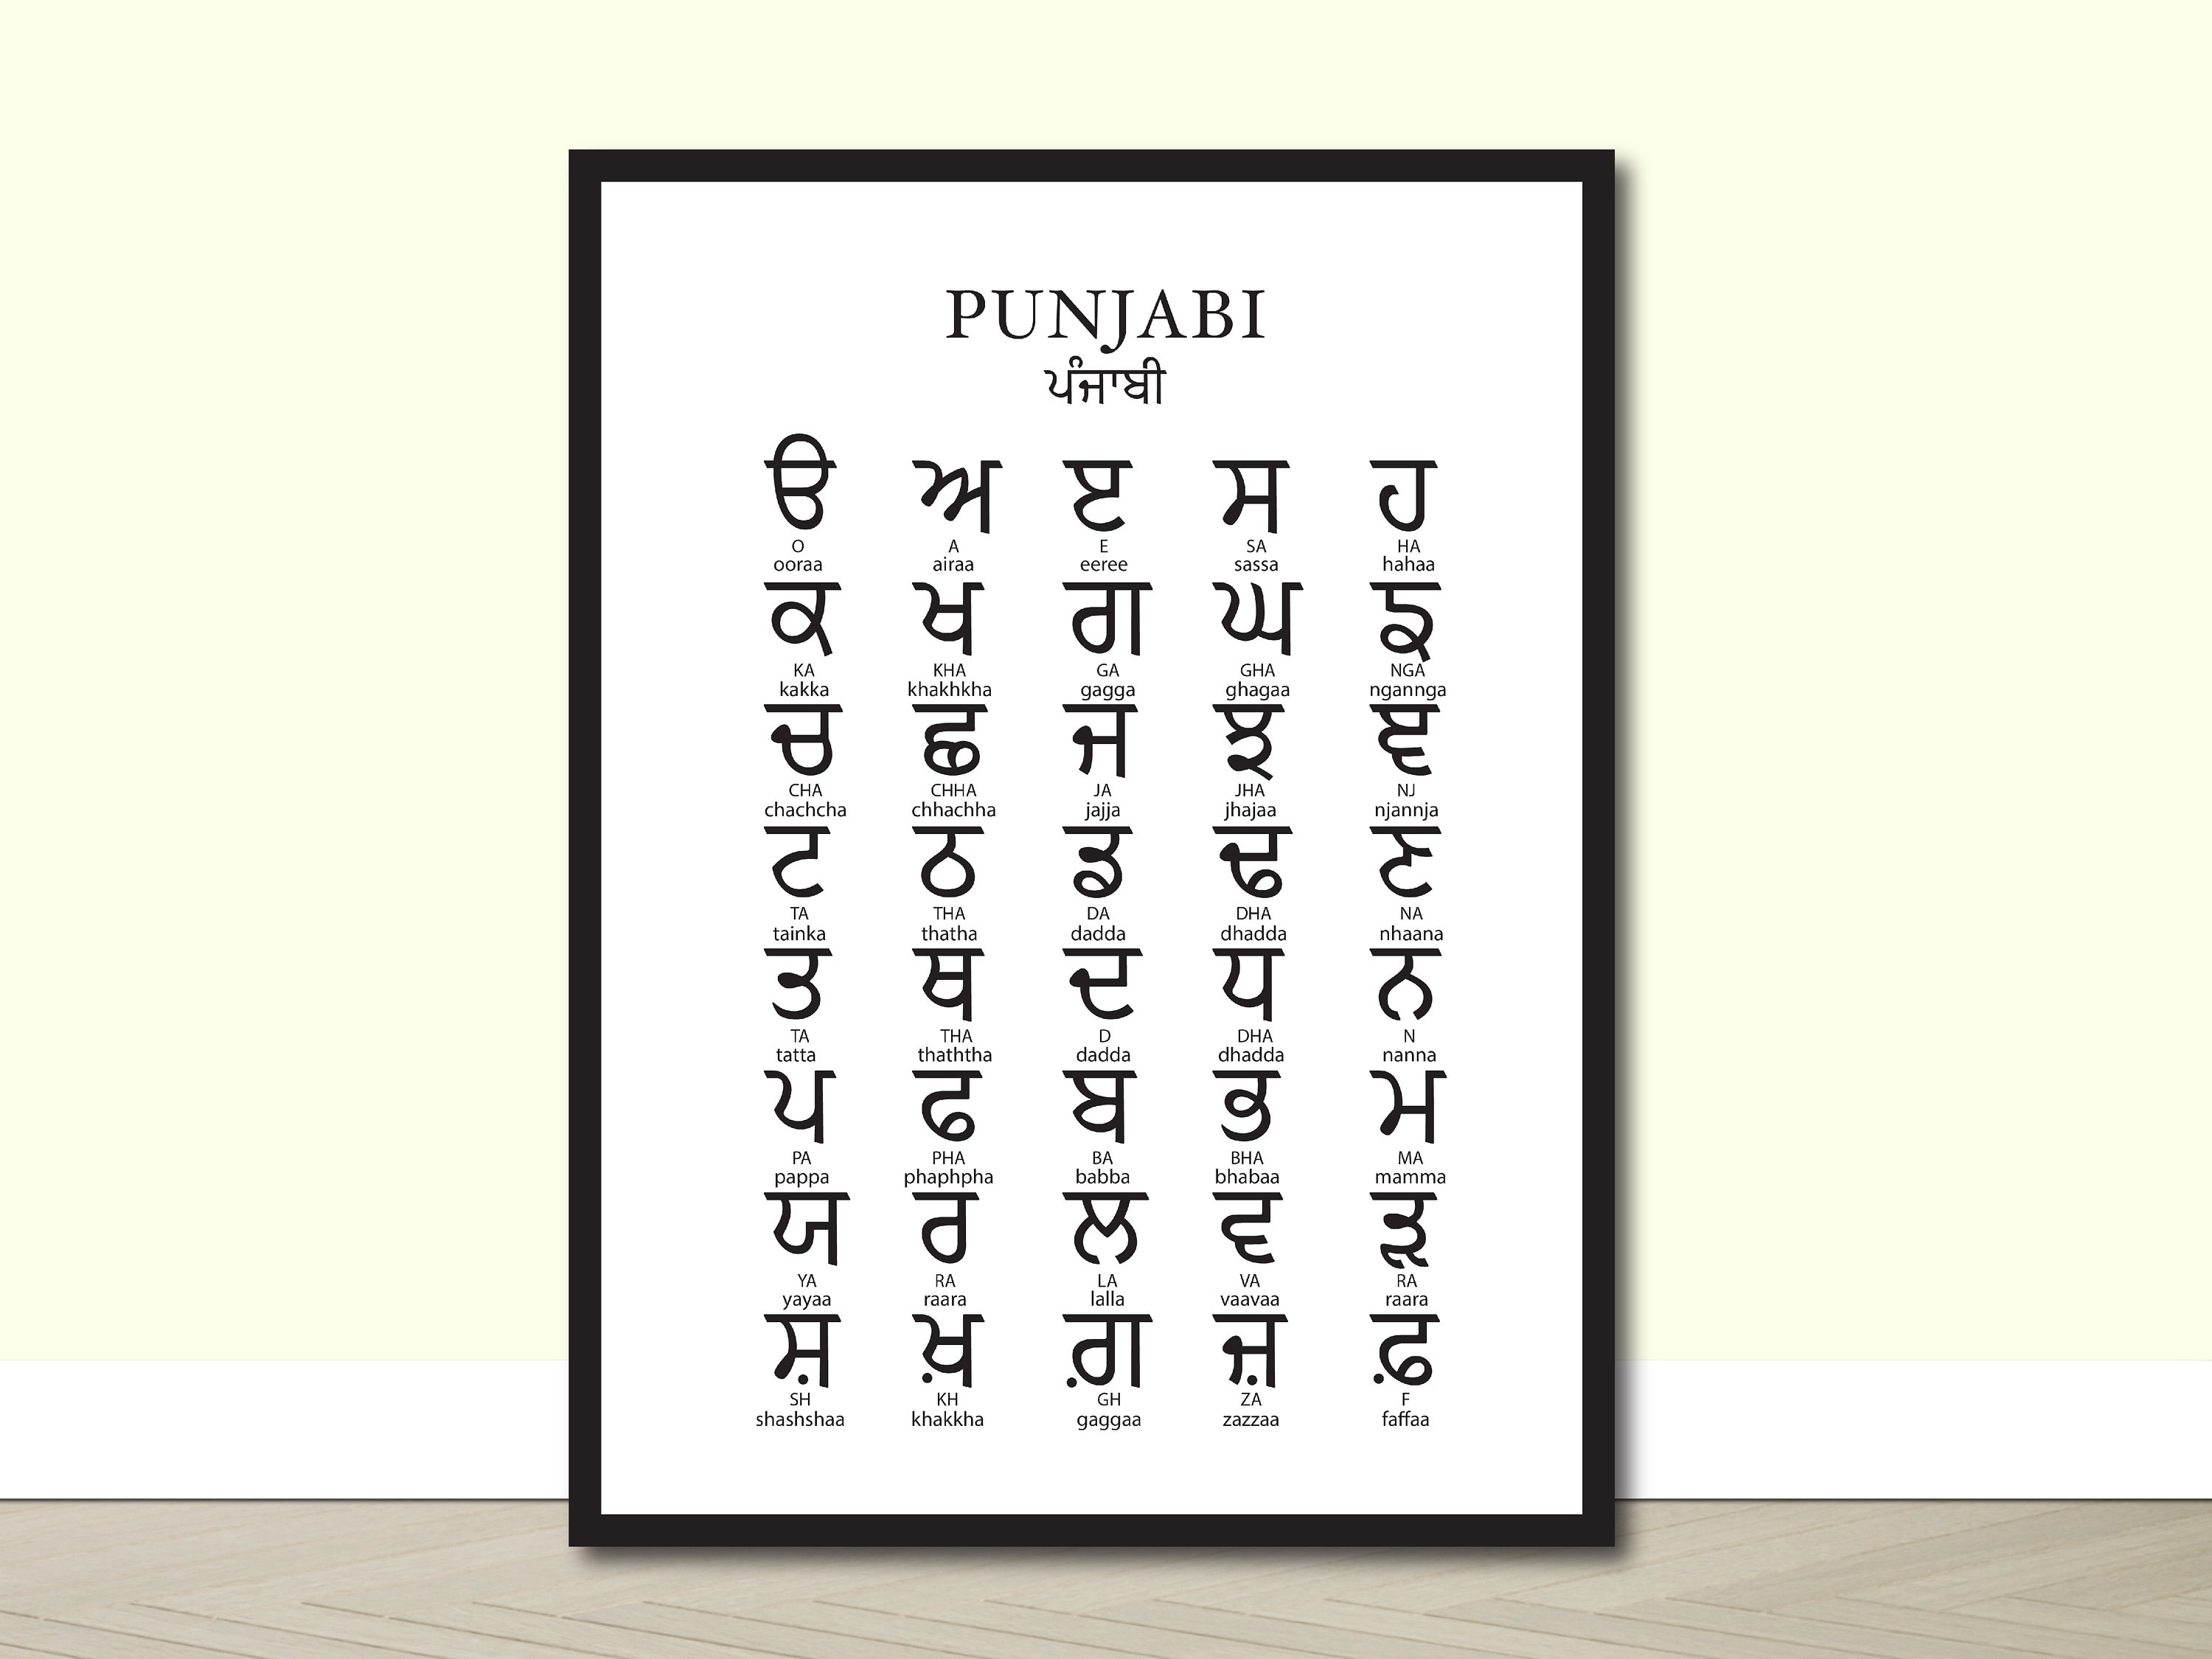 PUNJABI
ਪੰਜਾਬੀ
ੳ ਅ ੲ ਸ ਹ
O A E SA HA
ooraa airaa eeree sassa hahaa
ਕ ਖ ਗ ਘ ਙ
KA KHA GA GHA NGA
kakka khakhkha gagga ghagaa ngannga
ਚ ਛ ਜ ਝ ਞ
CHA CHHA JA JHA NJ
chachcha chhachha jajja jhajaa njannja
ਟ ਠ ਡ ਢ ਣ
TA THA DA DHA NA
tainka thatha dadda dhadda nhaana
ਤ ਥ ਦ ਧ ਨ
TA THA D DHA N
tatta thaththa dadda dhadda nanna
ਪ ਫ ਬ ਭ ਮ
PA PHA BA BHA MA
pappa phaphpha babba bhabaa mamma
ਯ ਰ ਲ ਵ ੜ
YA RA LA VA RA
yayaa raara lalla vaavaa raara
ਸ਼ ਖ਼ ਗ਼ ਜ਼ ਫ਼
SH KH GH ZA F
shashshaa khakkha gaggaa zazzaa faffaa